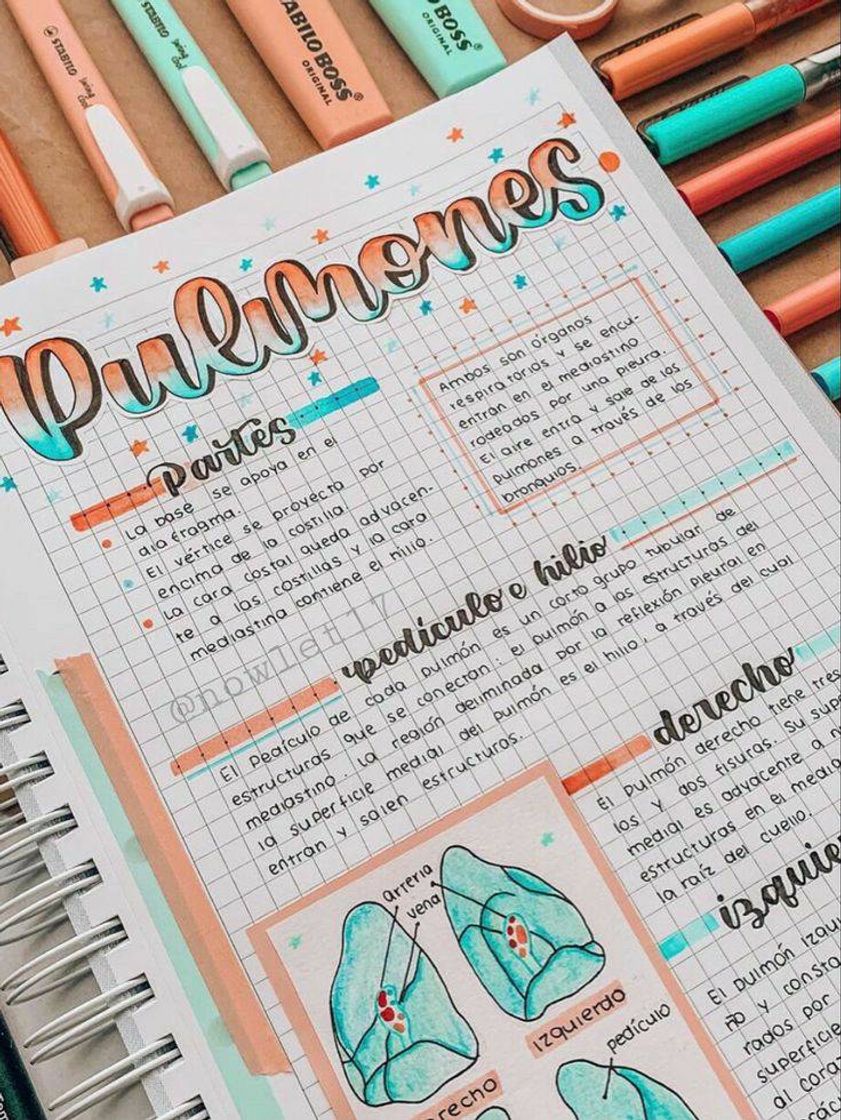 STABILO swing cool
STABILO swing cool
STABILO BOSS
ORIGINAL
BOSS
ORIGINAL
Pulmones
Ambos son órganos
respiratorios y se encu-
entran en el mediastino
rodeados por una pleura.
El aire entra y sale de los
pulmones a través de los
bronquios.
Partes
La base se apoya en el
diafragma.
El vértice se proyecta por
encima de la costilla
La cara costal queda adyacen-
te a las costillas y la cara
mediastina contiene el hilio.
@nowlet17
pedículo e hilio
El pedículo de cada pulmón es un corto grupo tubular de
estructuras que se conectan: el pulmón a las estructuras del
mediastino. La región delimitada por la reflexión pleural en
la superficie medial del pulmón es el hilio, a través del cual
entran y salen estructuras.
derecho
El pulmón derecho tiene tres
los y dos fisuras. Su supe
medial es adyacente a
estructuras en el media
la raíz del cuello.
arteria
vena
izquierdo
pedículo
recho
izquie
El pulmón izqu
ño y consta
rados por
superficie
al coraz